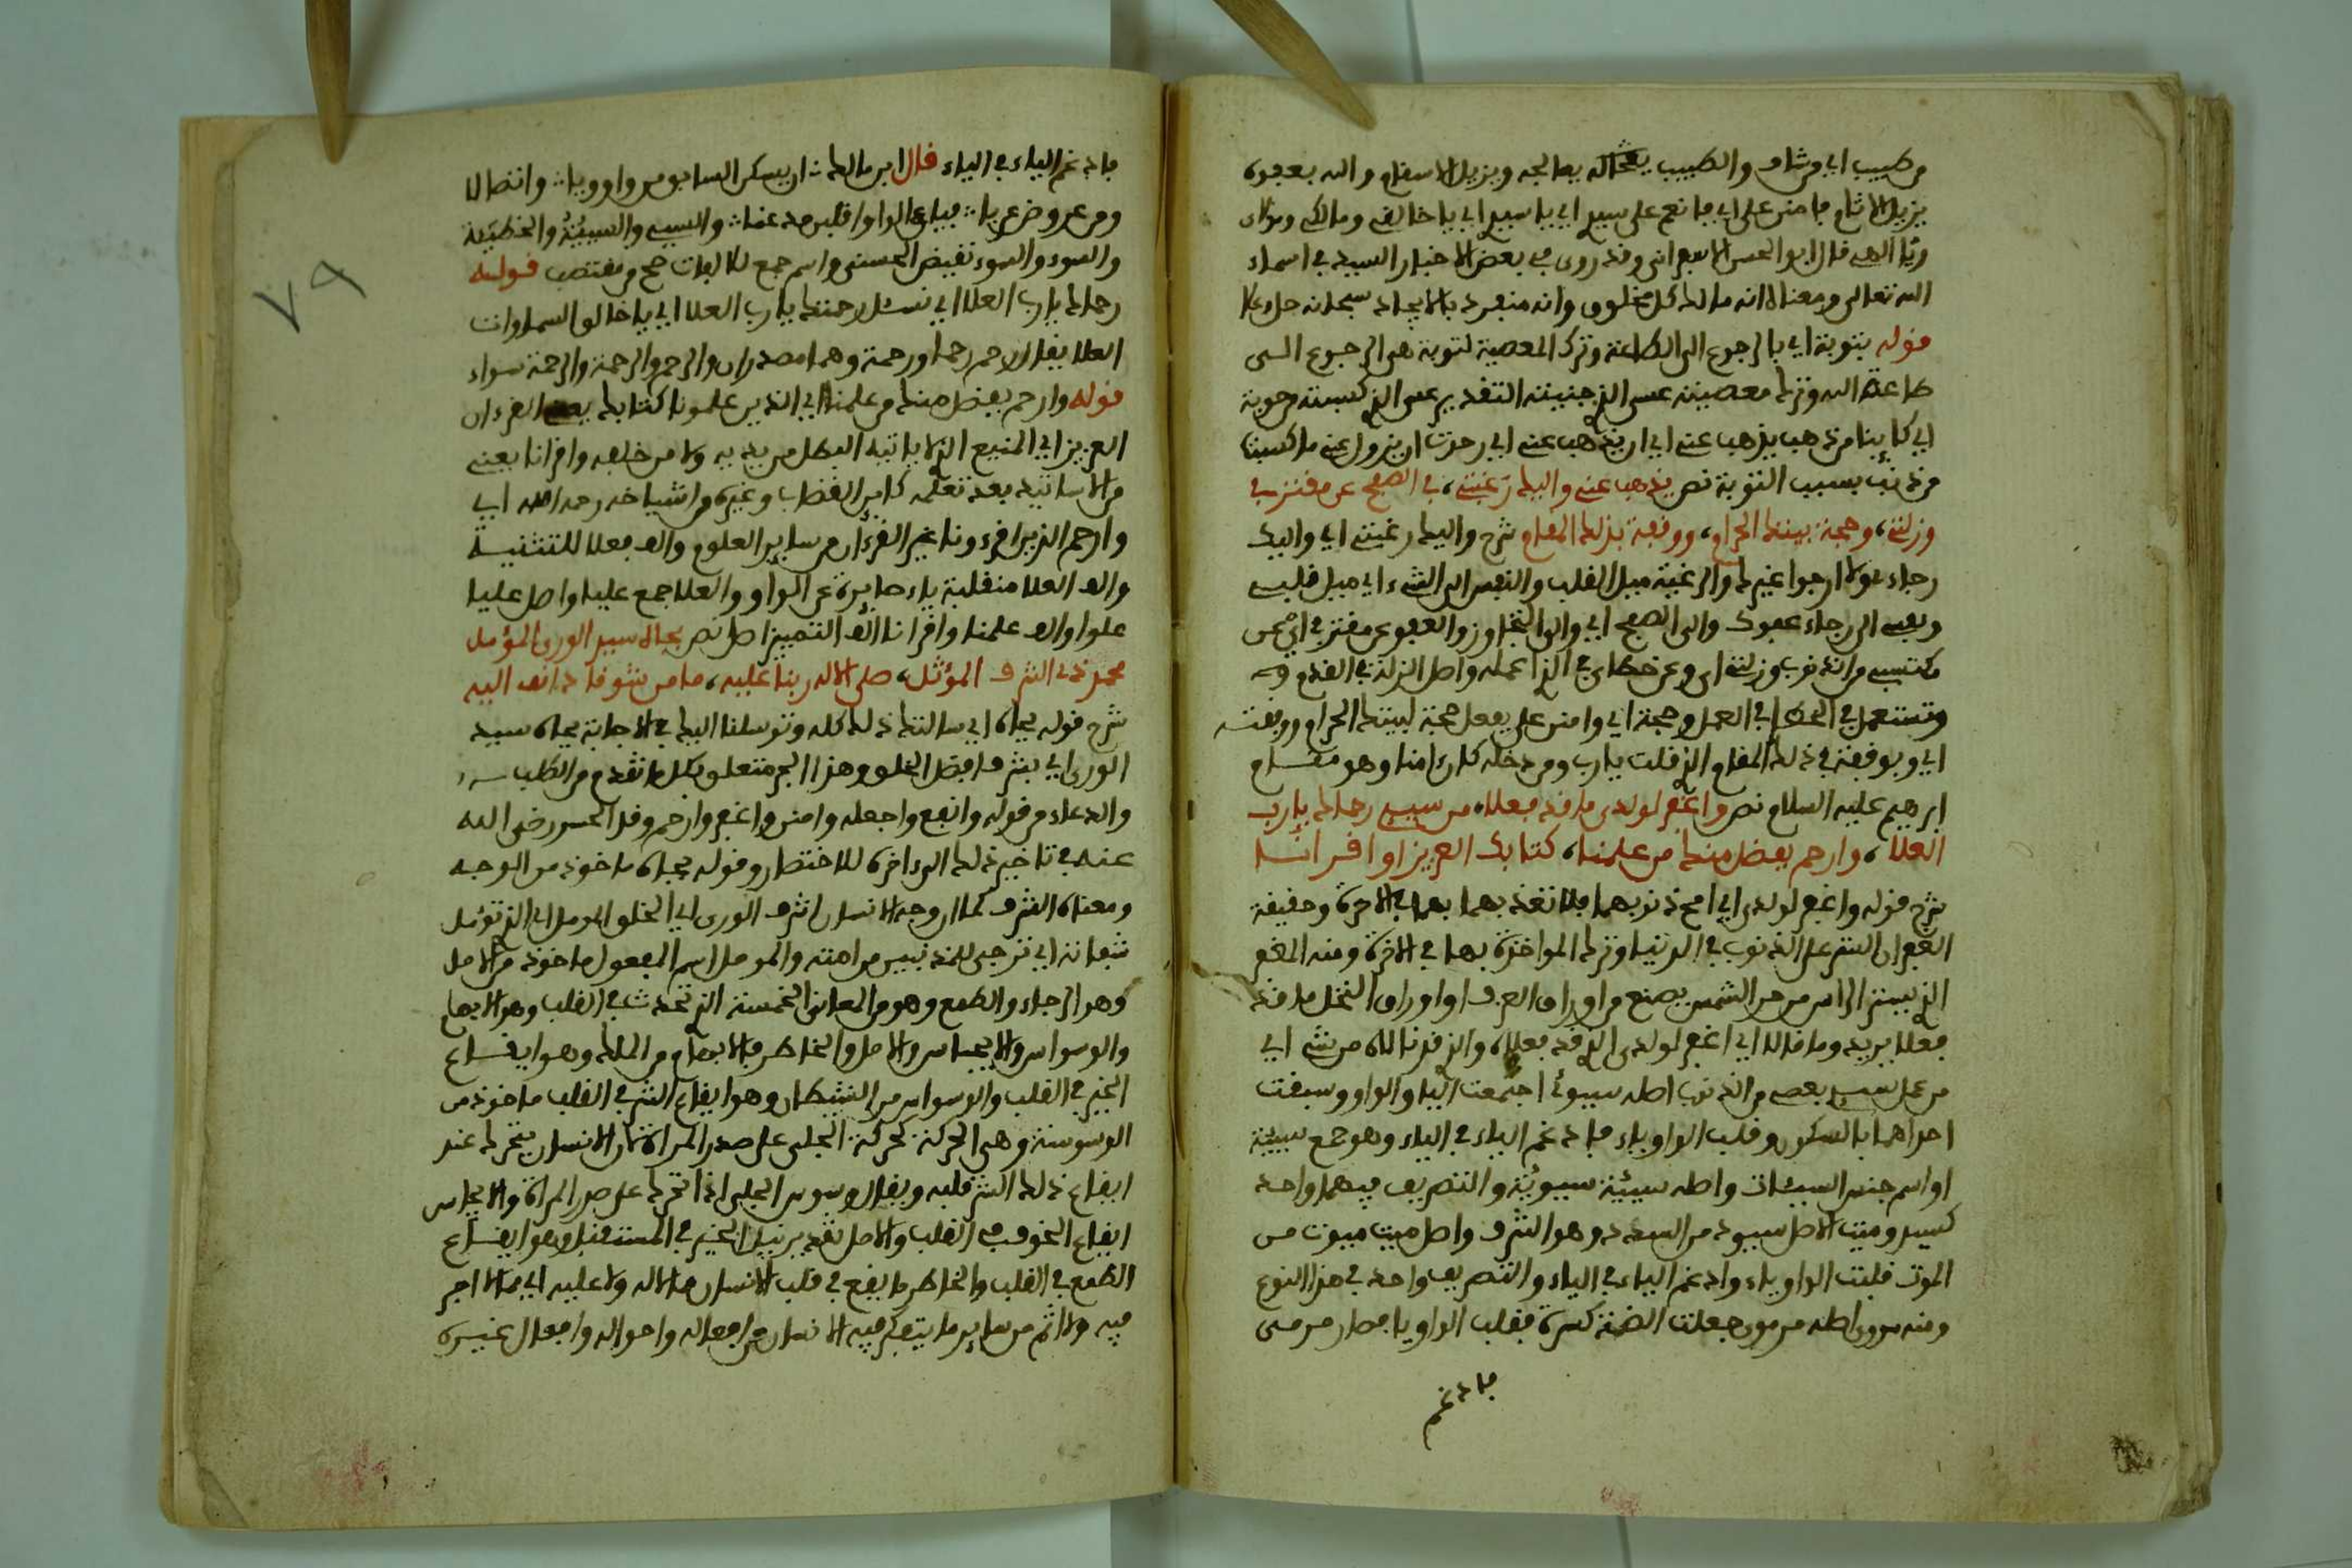 من طبيب اي من شاف والطبيب يعالجه ويزيل الاسقام والله بعفوه
يزيل الاثام فامنن علي اي فانعم علي سيدي اي يا سيدي اي يا خالقي ومالكي ومولاي
ويا الهي قال ابو الحسن وقد روي في بعض الاخبار السيد في اسماء
الله تعالى ومعناه انه مالك كل مخلوق وانه منفرد بالايجاد سبحانه جل وعلا
قوله بتوبة اي بالرجوع الى الطاعة وترك المعصية لتوبة هي الرجوع الى
طاعة الله وترك معصيته عسى الذي جنيته التقدير عسى الذي كسبته من حوبة
اي كاينا من ذهب يذهب عني اي ان يذهب عني اي رجوت ان يزول عني ما كسبنا
من ذنب بسبب التوبة نص يذهب عني واليك رغبتي، في الصفح عن مقترفي
وزلتي، وحجة بيتك الحرام، ووقفة بذلك المقام شرح واليك رغبتي اي واليك
رجاءي لا ارجوا غيرك والرغبة ميل القلب والنفس الى الشيء اي ميل قلبي
ونفسي الى رجاء عفوك والى الصفح اي والى التجاوز والعفو عن مقترفي اي عن
مكتسبي من الذنوب وزلتي اي وعن خطاي في الذي اعمله واصل الزلة في القدم وقد
وتستعمل في الخطا في العمل وحجة اي وامنن علي بفعل حجة لبيتك الحرام ووقفته
اي وبوقفة في ذلك المقام الذي قلت يا رب ومن دخله كان امنا وهو مقام
ابرهيم عليه السلام نص واغفر لولدي ما قد فعلا، من سيي رحماك يا رب
العلا، وارحم بفضل منك من علمنا، كتابك العزيز او اقرانا
شرح قوله واغفر لولدي اي امح ذنوبهما فلا تعذبهما بهما في الاخرة وحقيقة
الغفران الستر على الذنوب في الدنيا وترك المواخذة بها في الاخرة ومنه المغفر
الذي يستر الراس من حر الشمس يصنع من اوراق العزف او اوراق النخل ما قد
فعلا يريد وما قالا اي اغفر لولدي الذي قد فعلاه والذي قد نالاه من شيء اي
من عمل سيي يعني من الذنوب اصله سيوئ اجتمعت الياء والواو وسبقت
احداهما بالسكون وقلب الواو ياء فادغم الياء في الياء وهو جمع سيئة
او اسم جنس السيئات واصله سيئة سيوئة والتصريف فيهما واحد
كسيد وميت الاصل سيود من السودد وهو الشرف واصل ميت ميوت من
الموت قلبت الواو ياء وادغم الياء في الياء والتصريف واحد في هذا النوع
ومنه اصله مرموي جعلت الضمة كسرة فقلب الواو يا فصار مرمي
فادغم
٧٩
فادغم الياء في الياء قال ابن مالك ان يسكن السابق من واو ويا واتصلا
ومن عروض عريا فياء الواو اقلبن مدغما والسيي والسيئة والخطيئة
والسوء والسوء نقيض الحسنى واسم جمع للافات صح من مقتضب قوله
رحماك يا رب العلا اي نسئل رحمتك يا رب العلا اي يا خالق السماوات
العلا يقال رحم رحما ورحمة وهما مصدران والرحم والرحمة والرحمة سواء
قوله وارحم بفضل منك من علمنا اي الذين علمونا كتابك القرءان
العزيز اي المنيع الذي لا ياتيه الباطل من بين يديه ولا من خلفه واقرانا يعني
من الاساتيد بعد تعلمه كابن القضاب وغيره من اشياخه رحمه الله اي
وارحم الذين اقرءونا غير القرءان من ساير العلوم والف فعلا للتثنية
والف العلا منقلبة ياء صايرة عن الواو والعلا جمع عليا واصل عليا
علوا والف علمنا واقرانا الف التمييز اصل نص بجاه سيد الورى المؤمل
محمد ذي الشرف المؤثل، صلى الاله ربنا عليه، ما من شوقا دانف اليه
شرح قوله بجاه اي سالتك ذلك كله وتوسلنا اليك في الاجابة بجاه سيد
الورى اي بشرف افضل الخلق وهذا الجر متعلق بكل ما تقدم من الطلب
والدعاء من قوله وانفع واجعله وامنن واغفر وارحم وقد الحسن رضي الله
عنه في تاخير ذلك الى ءاخره للاختصار وقوله بجاه ماخوذ من الوجه
ومعناه الشرف كما ان وجه الانسان اشرف الورى اي الخلق المومل اي الذي تؤمل
شفاعته اي ترجى للمذنبين من امته والمومل اسم المفعول ماخوذ من الامل
وهو الرجاء والطمع وهو من المعاني الخمسة التي تحدث في القلب وهو الالهام
والوسواس والايجاس والامل والخاطر فالالهام من الملك وهو ايقاع
الخير في القلب والوسواس من الشيطان وهو ايقاع الشر في القلب ماخوذ من
الوسوسة وهي الحركة كحركة الحلي على صدر المراة كان الانسان يتحرك عند
ايقاع ذلك الشر قلبه ويقال وسوس الحلي اذا تحرك على صدر المراة والايجاس
ايقاع الخوف في القلب والامل تقدير نيل الخير في المستقبل وهو ايقاع
الطمع في القلب والخاطر ما يقع في قلب الانسان لا له ولا عليه اي لا اجر
فيه ولا اثم من ساير ما يتفكر فيه الانسان من افعاله واحواله وافعال غيره